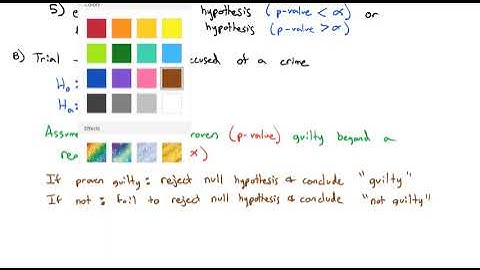 Colors
5) e hypothesis (p-value < α) or
hypothesis (p-value > α)
B) Trial - ccused of a crime
Ho:
Ha:
Effects
Assum roven (p-value) guilty beyond a
rea α)
If proven guilty : reject null hypothesis & conclude "guilty"
If not : fail to reject null hypothesis & conclude "not guilty"